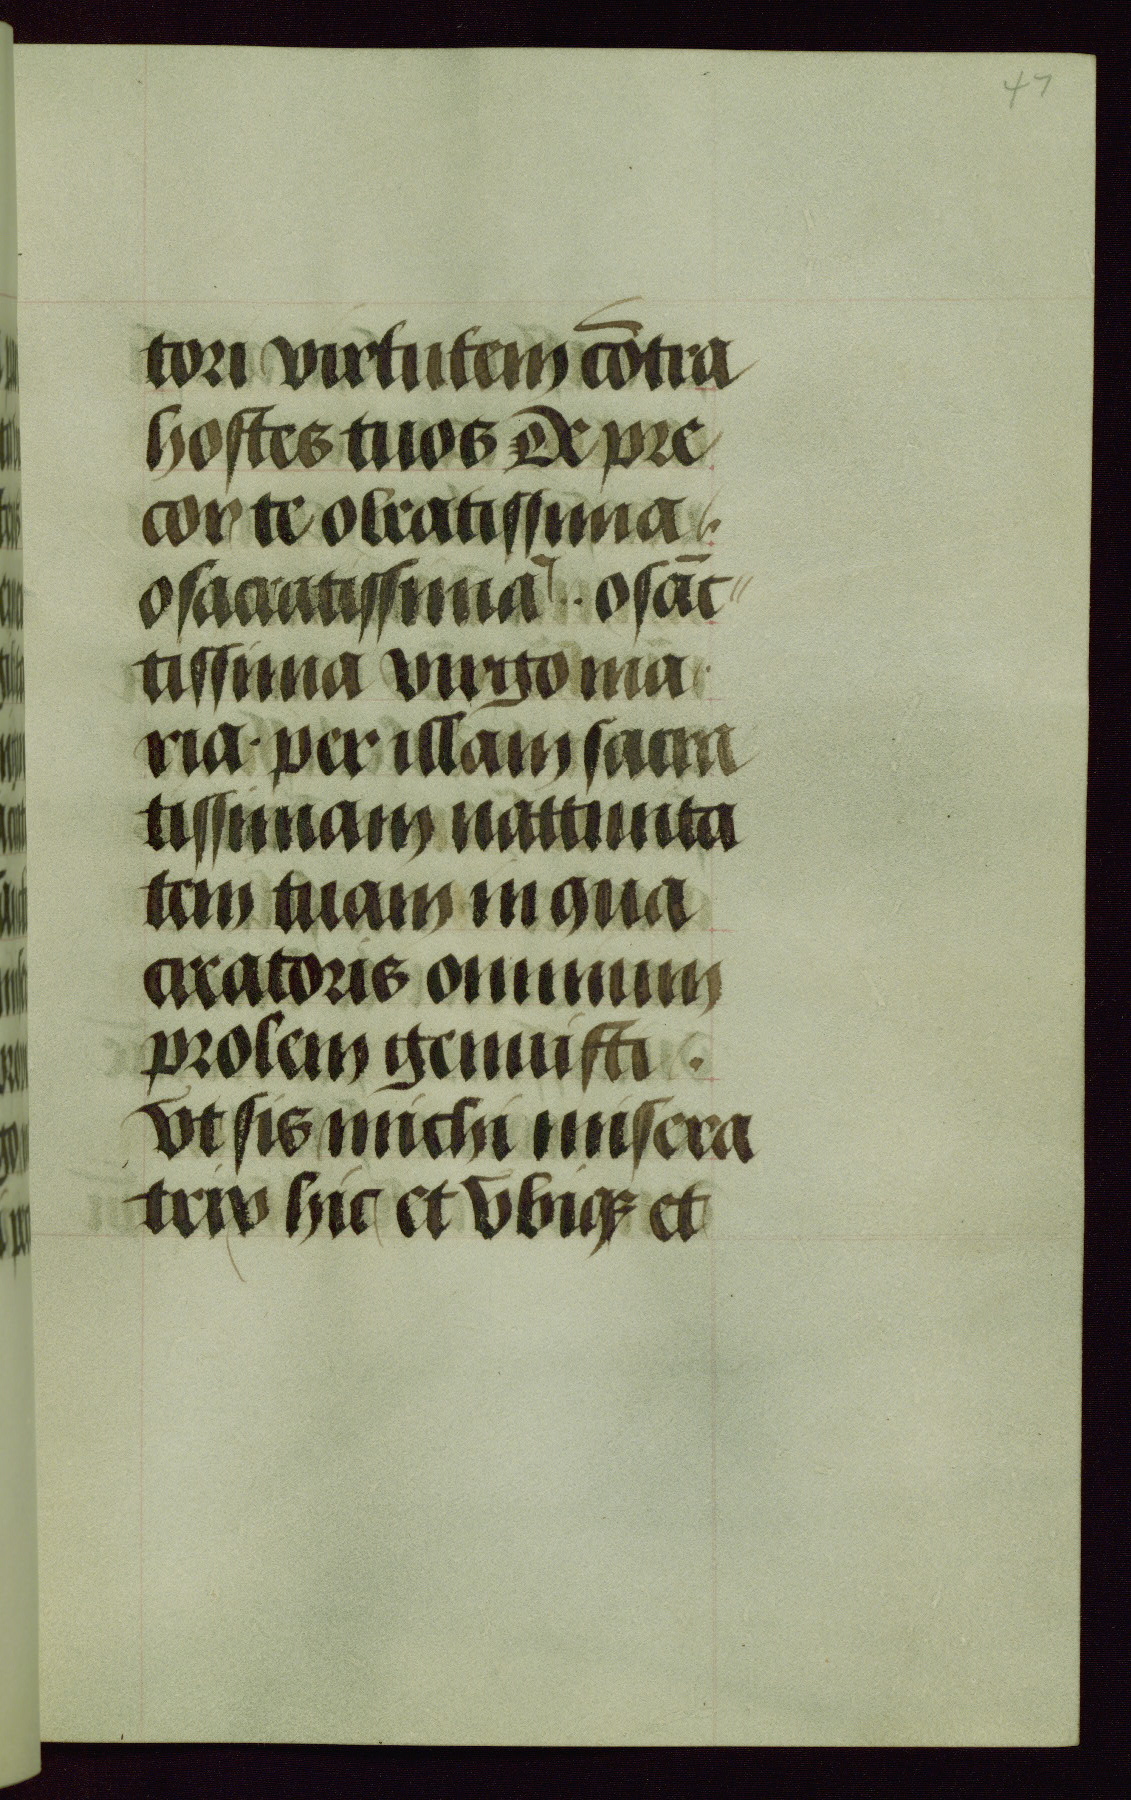 47
tori virtutem cōtra
hostes tuos De pre
cor te o beatissima
o sacratissima. o sāc
tissima virgo ma
ria. per illam sacra
tissimam nattiuita
tem tuam in qua
creatoris omnium
prolem genuisti.
vt sis michi misera
trix hic et vbiqꝫ et